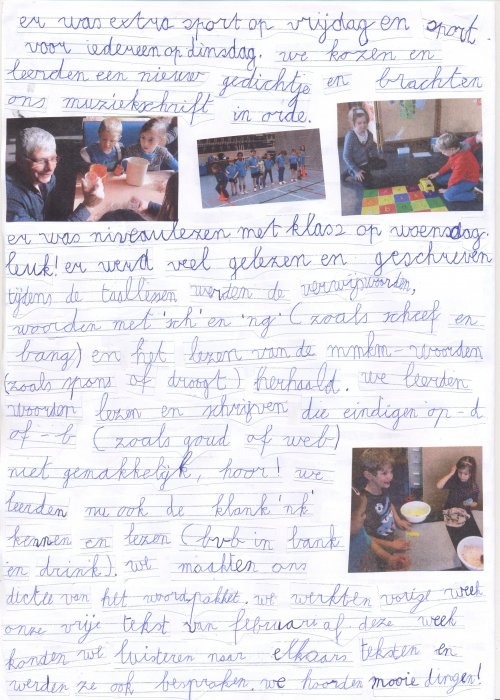 er was extra sport op vrijdag en sport
voor iedereen op dinsdag. we kozen en
leerden een nieuw gedichtje en brachten
ons muziekschrift in orde.
er was niveaulezen met klas 2 op woensdag.
leuk! er werd veel gelezen en geschreven
tijdens de taallessen werden de verwijwoorden,
woorden met 'sch' en 'ng' (zoals scheef en
bang) en het lezen van de mmkm-woorden
(zoals spons of droogt) herhaald. we leerden
woorden lezen en schrijven die eindigen op -d
of -b (zoals goud of web)
niet gemakkelijk, hoor! we
leerden nu ook de klank 'nk'
kennen en lezen (bvb in bank
en drink). we maakten ons
dictee van het woordpakket. we werkten vorige week
onze vrije tekst van februari af deze week
konden we luisteren naar elkaars teksten en
werden ze ook besproken. we hoorden mooie dingen!